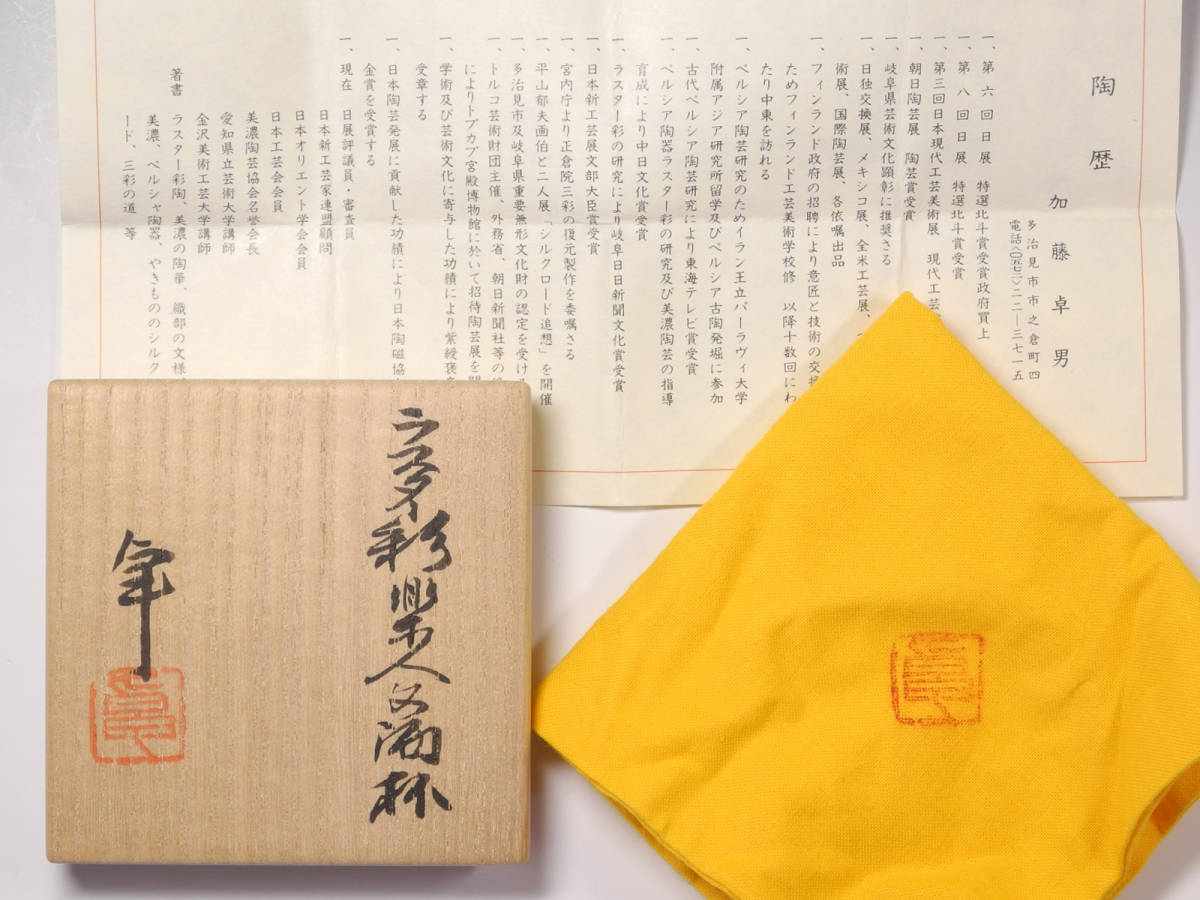 陶歴
加藤卓男
多治見市市之倉町四
電話〈〇五七二〉二二―三七一五
一、第六回日展 特選北斗賞受賞政府買上
一、第八回日展 特選北斗賞受賞
一、第三回日本現代工芸美術展 現代工芸
一、朝日陶芸展 陶芸賞受賞
一、岐阜県芸術文化顕彰に推奨さる
一、日独交換展、メキシコ展、全米工芸展、
術展、国際陶芸展、各依嘱出品
一、フィンランド政府の招聘により意匠と技術の交換
ためフィンランド工芸美術学校修 以降十数回にわ
たり中東を訪れる
一、ペルシア陶芸研究のためイラン王立パーラヴィ大学
附属アジア研究所留学及びペルシア古陶発掘に参加
一、古代ペルシア陶芸研究により東海テレビ賞受賞
一、ペルシア陶器ラスター彩の研究及び美濃陶芸の指導
育成により中日文化賞受賞
一、ラスター彩の研究により岐阜日日新聞文化賞受賞
一、日本新工芸展文部大臣賞受賞
一、宮内庁より正倉院三彩の復元製作を委嘱さる
一、平山郁夫画伯と二人展「シルクロード追想」を開催
一、多治見市及岐阜県重要無形文化財の認定を受ける
一、トルコ芸術財団主催、外務省、朝日新聞社等の
によりトプカプ宮殿博物館に於いて招待陶芸展を開
一、学術及び芸術文化に寄与した功績により紫綬褒
受章する
一、日本陶芸発展に貢献した功績により日本陶磁協
金賞を受賞する
一、現在 日展評議員・審査員
日本新工芸家連盟顧問
日本オリエント学会会員
日本工芸会会員
美濃陶芸協会名誉会長
愛知県立芸術大学講師
金沢美術工芸大学講師
著書 ラスター彩陶、美濃の陶華、織部の文様
美濃、ペルシャ陶器、やきもののシルク
ード、三彩の道 等
ラスター彩楽人文酒杯